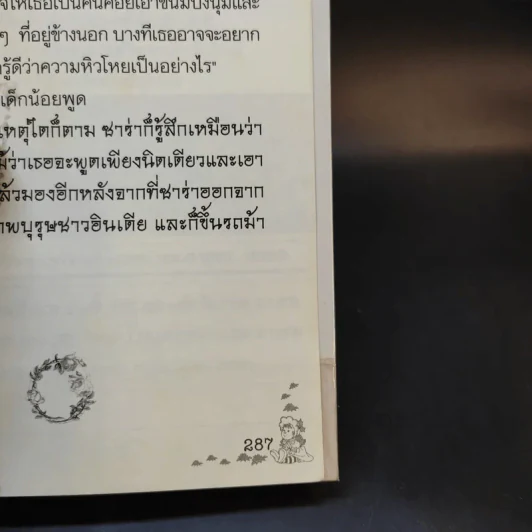 ให้เธอเป็นคนคอยเอาขนมปังนุ่มและ
ๆ ที่อยู่ข้างนอก บางทีเธออาจจะอยาก
รู้ดีว่าความหิวโหยเป็นอย่างไร"
เด็กน้อยพูด
เหตุใดก็ตาม ซาร่าก็รู้สึกเหมือนว่า
ม้ว่าเธอจะพูดเพียงนิดเดียวและเอา
ล้วมองอีกหลังจากที่ซาร่าออกจาก
าพบุรุษชาวอินเดีย และก็ขึ้นรถม้า
287